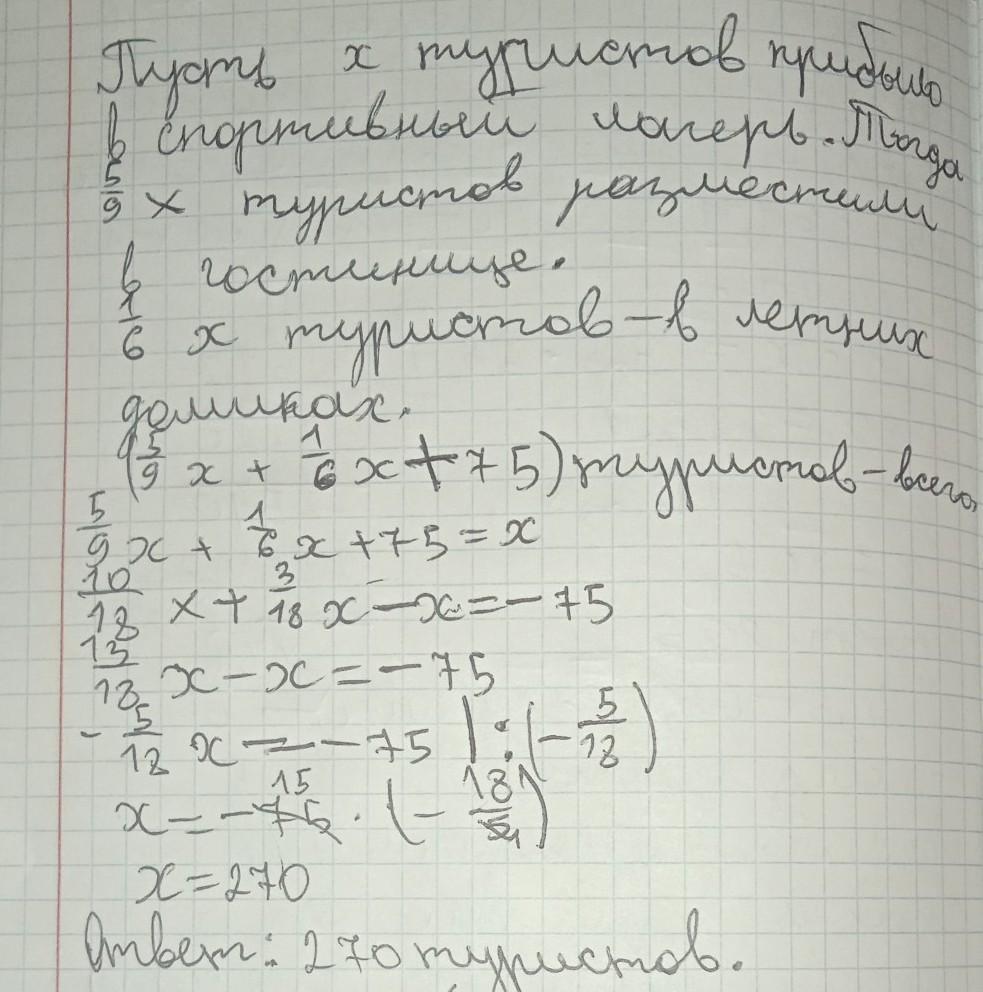 Пусть x туристов прибыло
в спортивный лагерь. Тогда
5/9 x туристов разместили
в гостинице.
1/6 x туристов – в летних
домиках.
(5/9 x + 1/6 x + 75) туристов – всего.
5/9 x + 1/6 x + 75 = x
10/18 x + 3/18 x – x = – 75
13/18 x – x = – 75
- 5/18 x = – 75 | : (– 5/18)
15
x = – 75 · (– 18/5 1)
x = 270
Ответ: 270 туристов.